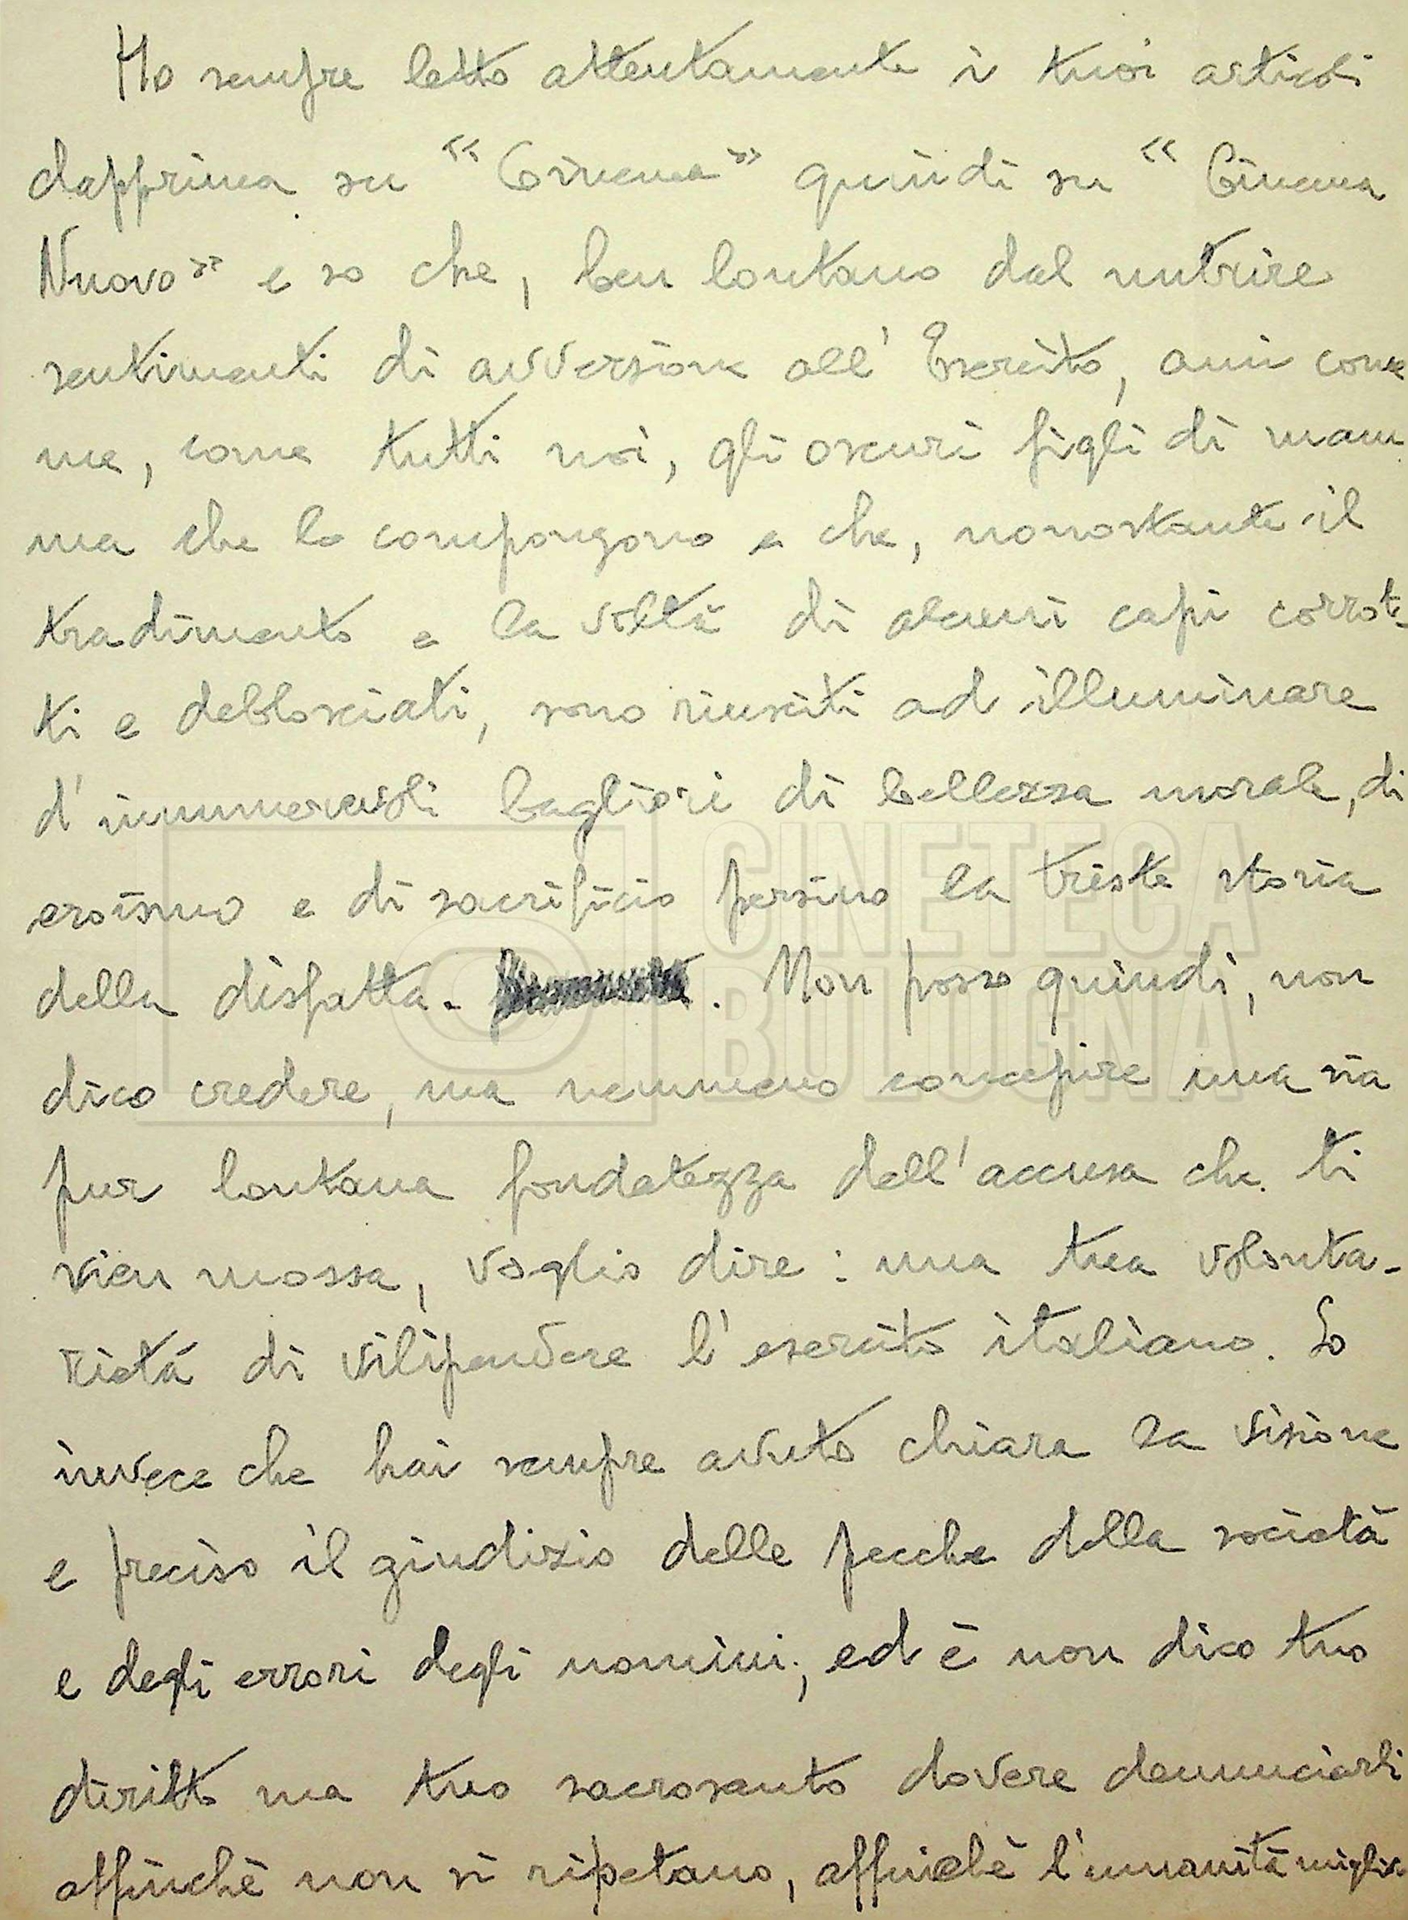 Ho sempre letto attentamente i tuoi articoli
dapprima su “Cinema” quindi su “Cinema
Nuovo” e so che, ben lontano dal nutrire
sentimenti di avversione all'Esercito, ami come
me, come tutti noi, gli oscuri figli di mam
ma che lo compongono e che, nonostante il
tradimento e la viltà di alcuni capi corrot-
ti e debosciati, sono riusciti ad illuminare
d'innumerevoli bagliori di bellezza morale, di
eroismo e di sacrificio persino la triste storia
della disfatta. . Non posso quindi, non
dico credere, ma nemmeno concepire una sia
pur lontana fondatezza dell'accusa che ti
vien mossa, voglio dire: una tua volonta-
rietà di vilipendere l'esercito italiano. So
invece che hai sempre avuto chiara la visione
e preciso il giudizio delle pecche della società
e degli errori degli uomini; ed è non dico tuo
diritto ma tuo sacrosanto dovere denunciarli
affinchè non si ripetano, affinchè l'umanità miglio
CINETECA
BOLOGNA